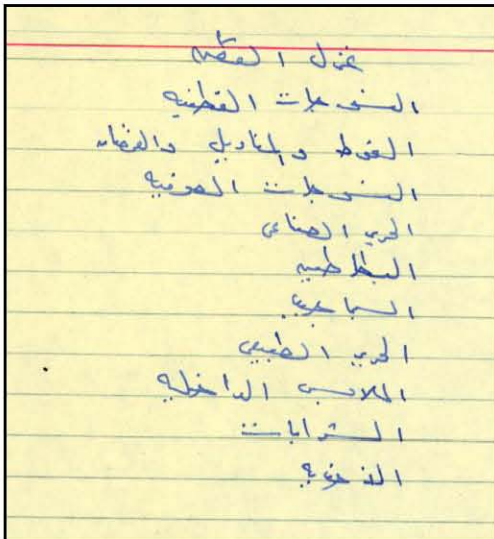 غزل القطن
المنسوجات القطنيه
الفوط والمناديل
المنسوجات الصوفيه
الحرير الصناعى
البطاطين
السجاجيد
الحرير الطبيعى
الملابس الداخليه
الشرابات
الاحذيه